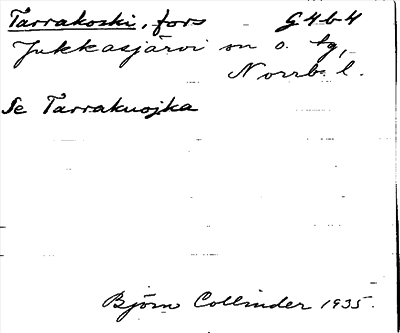 Tarrakoski, fors G4b4
Jukkasjärvi sn o. tg,
Norrb. l.
Se Tarrakuojka
Björn Collinder 1935.